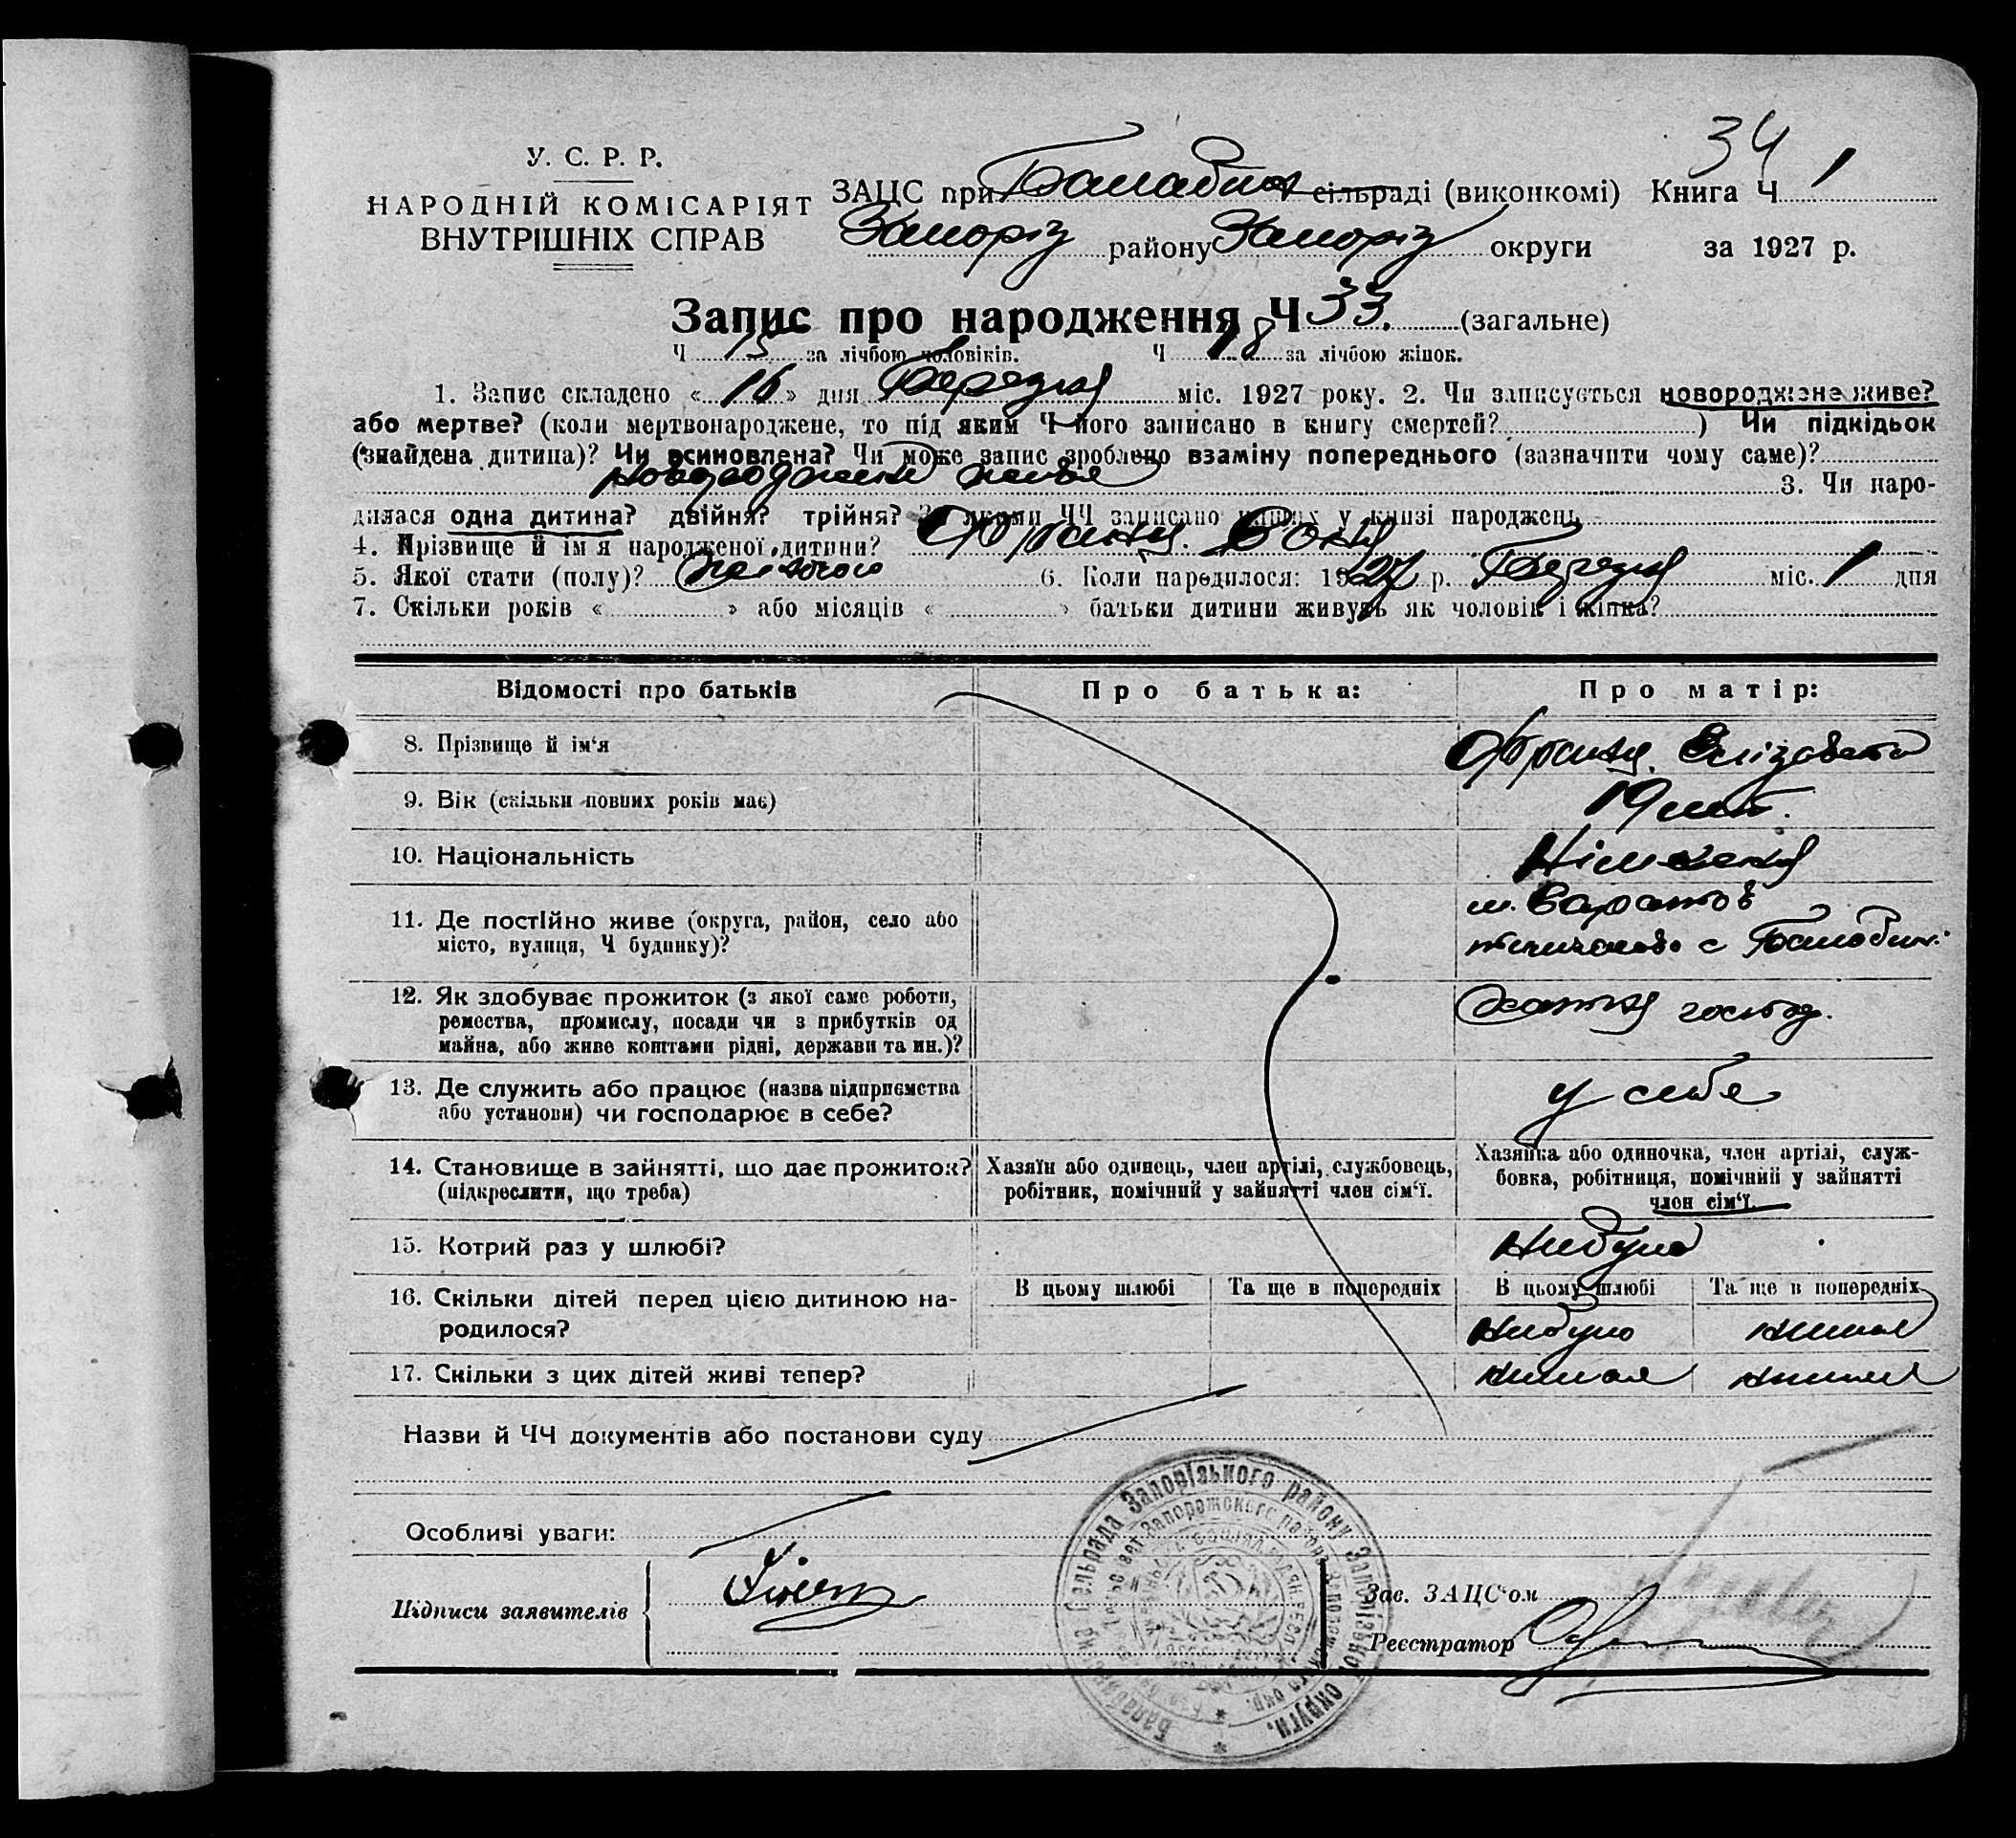 34
У. С. Р. Р.
НАРОДНІЙ КОМІСАРІЯТ
ВНУТРІШНІХ СПРАВ
ЗАЦС при Балабин сільраді (виконкомі) Книга Ч 1
Запоріз району Запоріз округи за 1927 р.
Запис про народження Ч 33. (загальне)
Ч 15 за лічбою чоловіків. Ч 18 за лічбою жінок.
1. Запис складено «16» дня Березня міс. 1927 року. 2. Чи записується новороджене живе?
або мертве? (коли мертвонароджене, то під яким Ч його записано в книгу смертей? ) Чи підкідьок
(знайдена дитина)? Чи всиновлена? Чи може запис зроблено взаміну попереднього (зазначити чому саме)?
3. Чи наро-
дилася одна дитина? двійня? трійня? З якими ЧЧ записано инших у книзі народжень
4. Прізвище й ім'я народженої дитини? Франц
5. Якої стати (полу)? жіночої 6. Коли народилося: 1927 р. Березня міс. 1 дня
7. Скільки років « » або місяців « » батьки дитини живуть як чоловік і жінка?
Відомості про батьків Про батька: Про матір:
8. Прізвище й ім'я Франц Єлізавета
9. Вік (скільки повних років має) 19 літ.
10. Національність Німкеня
11. Де постійно живе (округа, район, село або м. Саратов
місто, вулиця, Ч будинку)? с Балабин.
12. Як здобуває прожиток (з якої саме роботи, Хатня господ.
ремества, промислу, посади чи з прибутків од
майна, або живе коштами рідні, держави та ин.)?
13. Де служить або працює (назва підприємства у себе
або установи) чи господарює в себе?
14. Становище в зайнятті, що дає прожиток? Хазяїн або одинець, член артілі, службовець, Хазяйка або одиночка, член артілі, служ-
(підкреслити, що треба) робітник, помічний у зайнятті член сім'ї. бовка, робітниця, помічний у зайнятті
член сім'ї.
15. Котрий раз у шлюбі? Небула
16. Скільки дітей перед цією дитиною на- В цьому шлюбі Та ще в попередніх В цьому шлюбі Та ще в попередніх
родилося? Небуло немає
17. Скільки з цих дітей живі тепер? немає немає
Назви й ЧЧ документів або постанови суду
Особливі уваги:
Підписи заявителів
Зав. ЗАЦС'ом
Реєстратор
Балабинська Сельрада Запорізького району Запорізької округи.